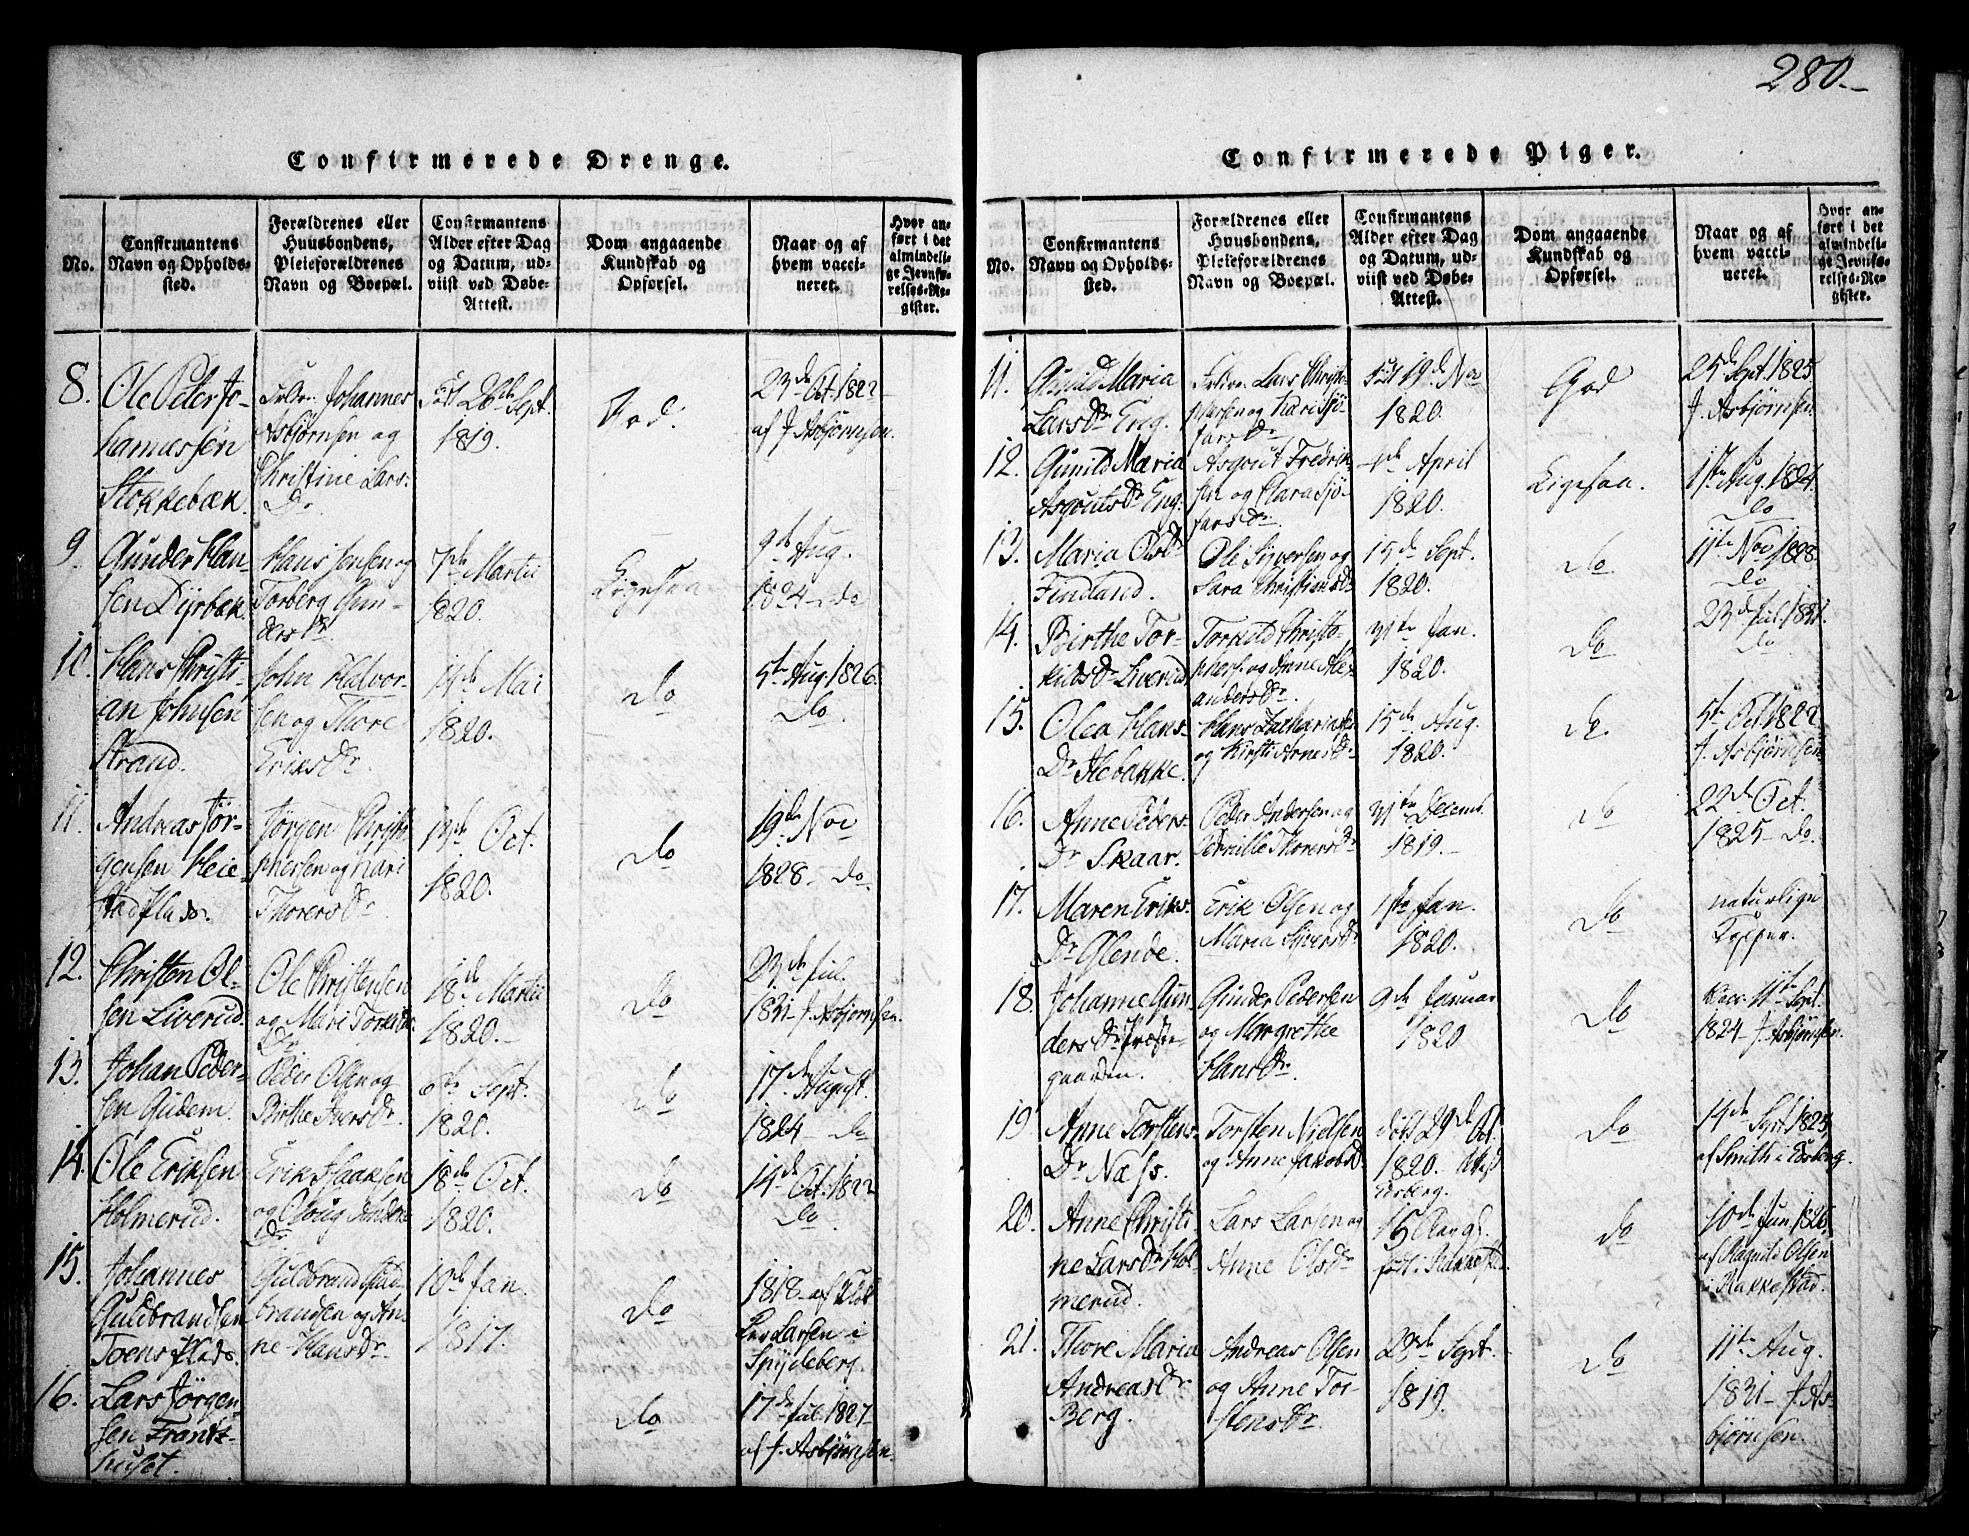 280.
Confirmerede Drenge.
No.
Confirmantens Navn og Opholdssted.
Forældrenes eller Huusbondens, Pleieforældrenes Navn og Boepæl.
Confirmantens Alder efter Dag og Datum, udviist ved Døbe-Attest.
Dom angaaende Kundskab og Opførsel.
Naar og af hvem vaccineret.
Hvor anført i det almindelige Jevnførelses-Register.
8.
Ole Peter Jo-
hannessen
Stokkebæk.
Johannes
Asbjørnsen og
Christine Lars-
Dr.
26de Sept.
1819.
God.
23de Oct. 1822
af J. Asbjørnsen.
9.
Gunder Han-
sen Dyrbæk.
Hans Jensen og
Torberg Gun-
ders Dr
7de Martii
1820.
Ligesaa
9de Aug.
1824 Do
10.
Hans Christi-
an Johnsen
Strand.
John Halvor-
sen og Thore
Eriks Dr.
14de Mai
1820.
Do
5te Aug. 1826.
Do.
11.
Andreas Jør-
gensen Heie-
stad Plads.
Jørgen Christo-
phersen og Kari
Thorers Dr
Oct.
1820.
Do
19de Nov
1828 Do
12.
Christen Ol-
sen Liverud.
Ole Christensen
og Mari Torkilds
Dr
18de Martii
1820.
Do
23de Jul.
1831 J. Asbjørnsen.
13.
Johan Peder-
sen Gudem.
Peder Olsen og
Birthe Ivers Dr
6te Sept.
1820.
Do
17de August
1824 Do
14.
Ole Eriksen
Holmerud.
Erik Isaaksen
og
Dr
18de Oct.
1820.
Do
14de Oct. 1822
Do
15.
Johannes
Guldbrandsen
Toens Plads.
Guldbrand Guld-
brandsen og An-
ne Hans Dr
10de Jan.
1817.
Do
1818 af
Lars Larsen i
Spydeberg.
16.
Lars Jørgen-
sen Frants-
huset.
Do
17de Jul. 1827
af J. Asbjørnsen.
Confirmerede Piger.
No.
Confirmantens Navn og Opholdssted.
Forældrenes eller Huusbondens, Pleieforældrenes Navn og Boepæl.
Confirmantens Alder efter Dag og Datum, udviist ved Døbe-Attest.
Dom angaaende Kundskab og Opførsel.
Naar og af hvem vaccineret.
Hvor anført i det almindelige Jevnførelses-Register.
11.
Gunild Maria
Lars Dr Eng.
Lars Christo-
phersen og
19de Nov
1820.
God
25de Sept. 1825
J. Asbjørnsen.
12.
Gunild Maria
Asgouts Dr Eng.
Asgout Fredrik-
sen og Clara
April
1820.
Ligesaa.
17de Aug. 1824.
Do
13.
Maria Ols Dr
Findland.
Ole Syversen og
Sara Christians Dr
15de Sept.
1820.
Do
11te Nov. 1828.
Do
14.
Birthe Tor-
kilds Dr Liverud
Torkild Christo-
phers. og Anne Alex-
anders Dr
31te Jan.
1820.
Do
23de Jul. 1831.
Do
15.
Olea Hans-
Dr Alebakke.
Hans Zachariasen
og Kirsti Arnes Dr
15de Aug.
1820.
Do.
5te Oct. 1822
J. Asbjørnsen
16.
Anne Peders-
Dr Skaar.
Peder Andersen og
Pernille Thorers Dr
31te Decemb.
1819.
Do
22de Oct.
1825 Do.
17.
Maren Eriks-
Dr Glende.
Erik Olsen og
Maria Syvers Dr
1ste Jan.
1820.
Do
naturlige
Kopper.
18.
Johanne Gun-
ders Dr Præste-
gaarden.
Gunder Pedersen
og Margrethe
Hans Dr.
9de Januar
1820
Do
vacc. 11te Sept.
1824 J. Asbjørnsen.
19.
Anne Torstens-
Dr Næss.
Torsten Nielsen
og Anne Jakobs Dr
døbt 29de Oct.
1820.
Eidsberg.
Do
14de Sept 1825
af Smith i Eidsberg.
20.
Anne Christi-
ne Lars Dr Hol-
merud.
Lars Larsen og
Anne Ols Dr
15 Aar gl.
født i Rakkestad
Do
10de Jun. 1826
af Ragnild Olsen
i Rakkestad.
21.
Thore Maria
Andreas Dr
Berg.
Andreas Olsen
og Anne Tor-
stens Dr.
28de Sept.
1819.
Do
11te Aug.
1831 J. As-
bjørnsen.